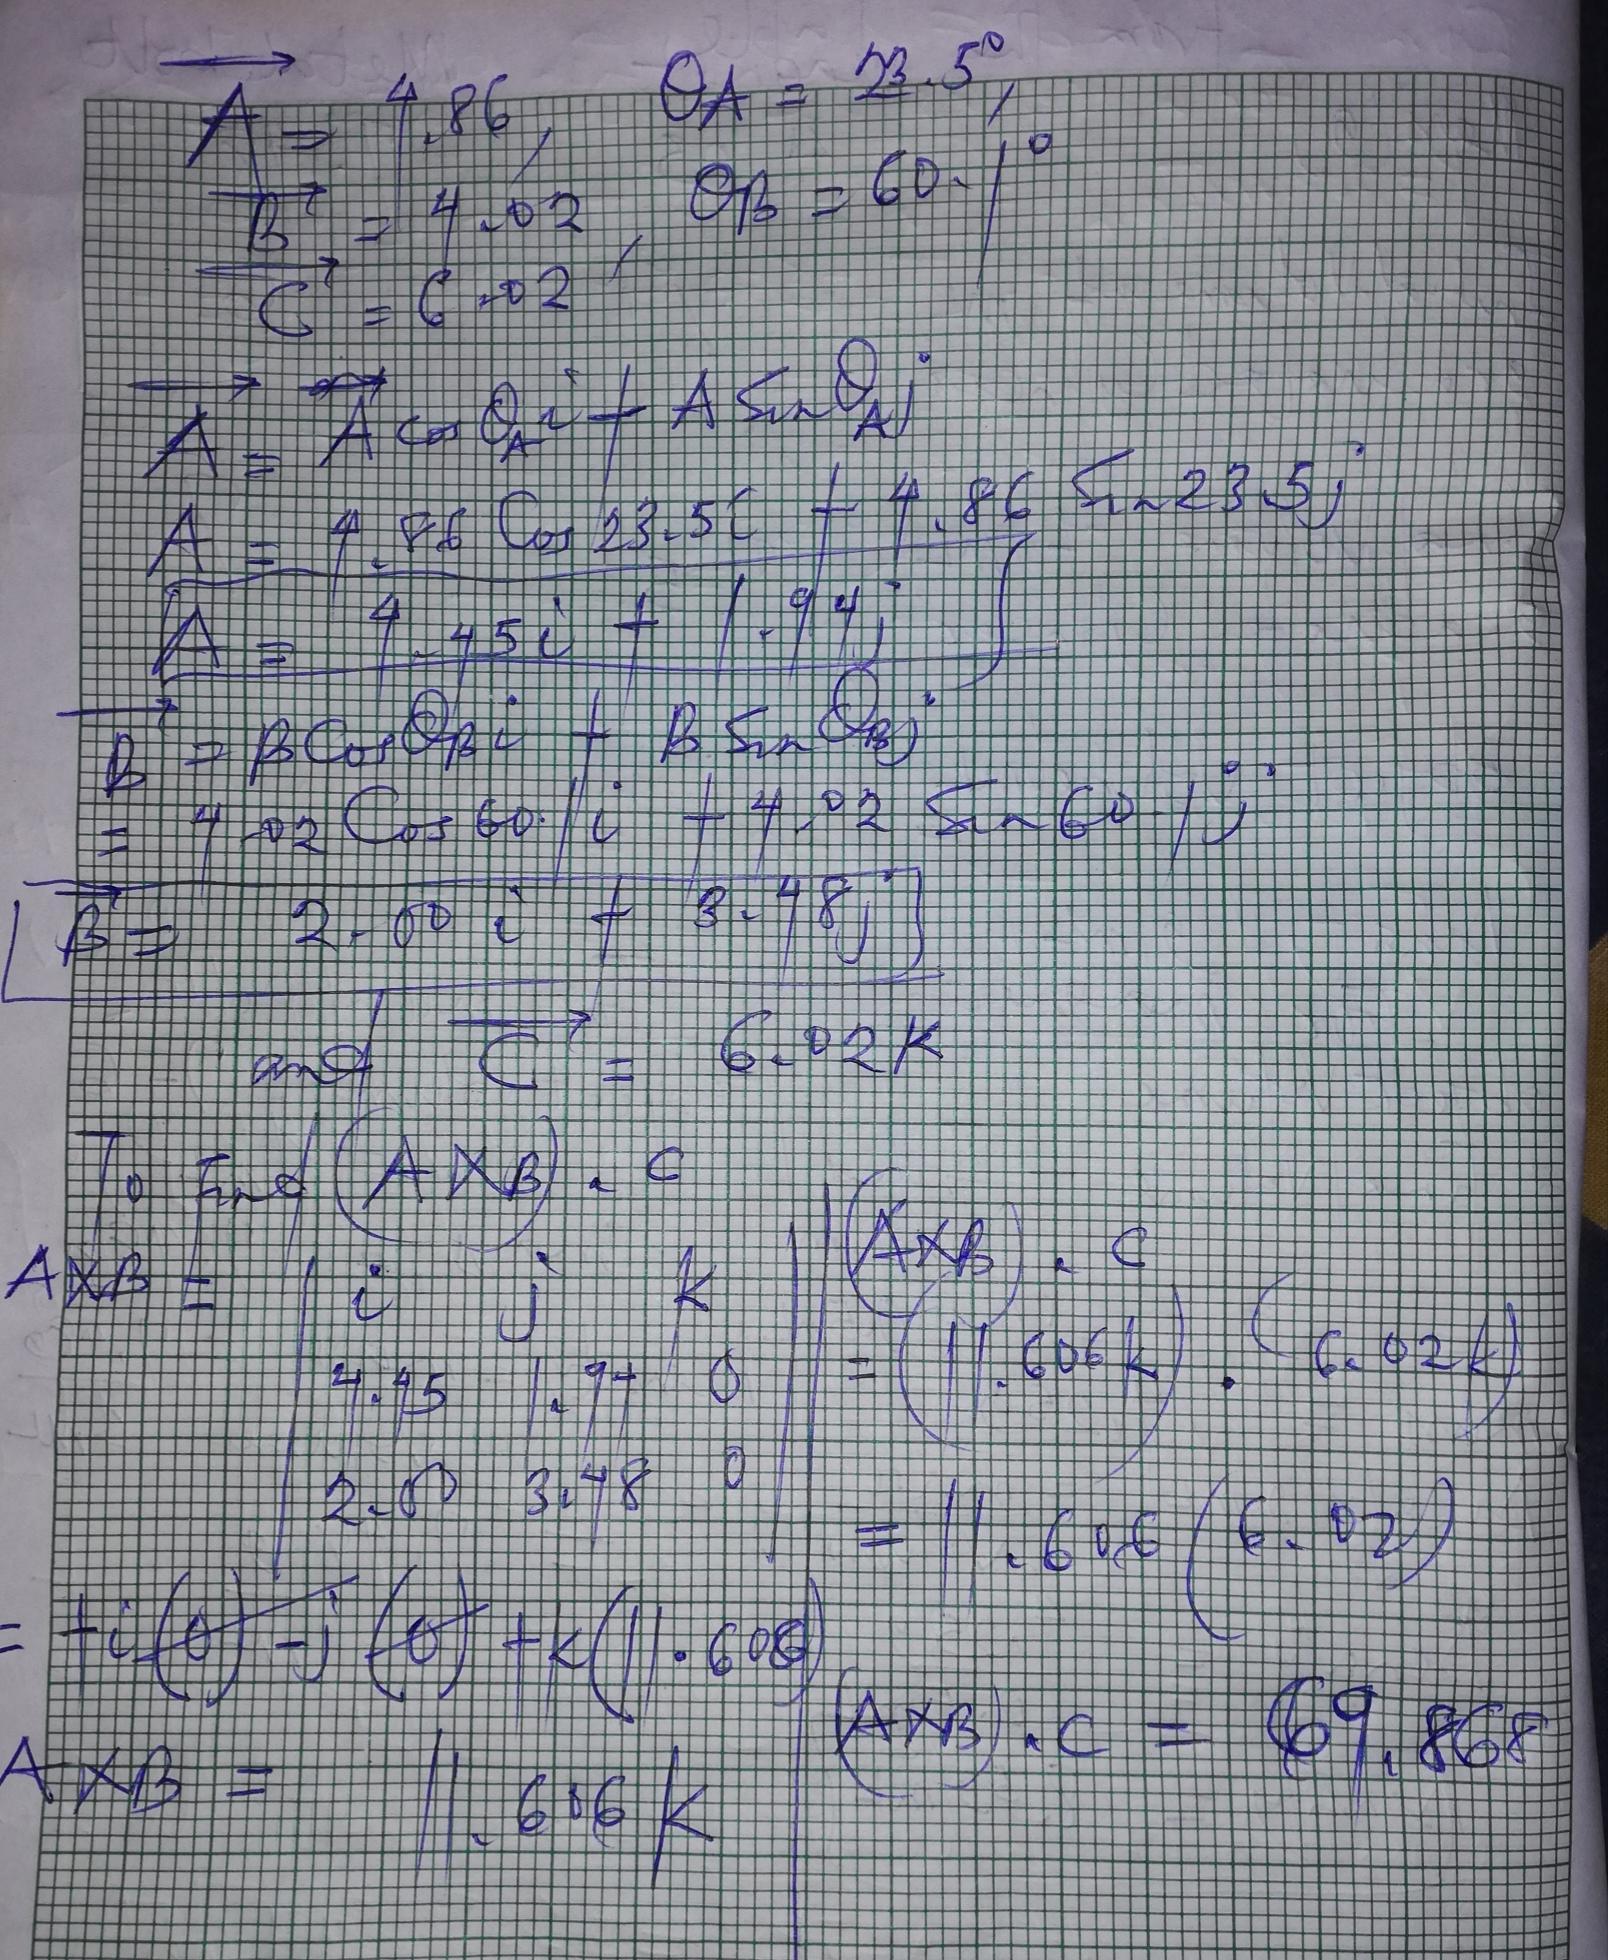 A = 4.86, θA = 23.5°,
B = 4.02, θB = 60.1°
C = 6.02
A = A cos θA i + A Sin θA j
A = 4.86 Cos 23.5i + 4.86 Sin 23.5j
A = 4.45i + 1.94j
B = B Cos θB i + B Sin θB j
= 4.02 Cos 60.1i + 4.02 Sin 60.1j
B = 2.00 i + 3.48j
and C = 6.02K
To Find (A X B) . C
A X B = | i j k |
4.45 1.94 0
2.00 3.48 0
= +i(0) - j(0) + k(11.606)
A X B = 11.606 K
(A X B) . C
= (11.606 k) . (6.02k)
= 11.606 (6.02)
(A X B) . C = 69.868